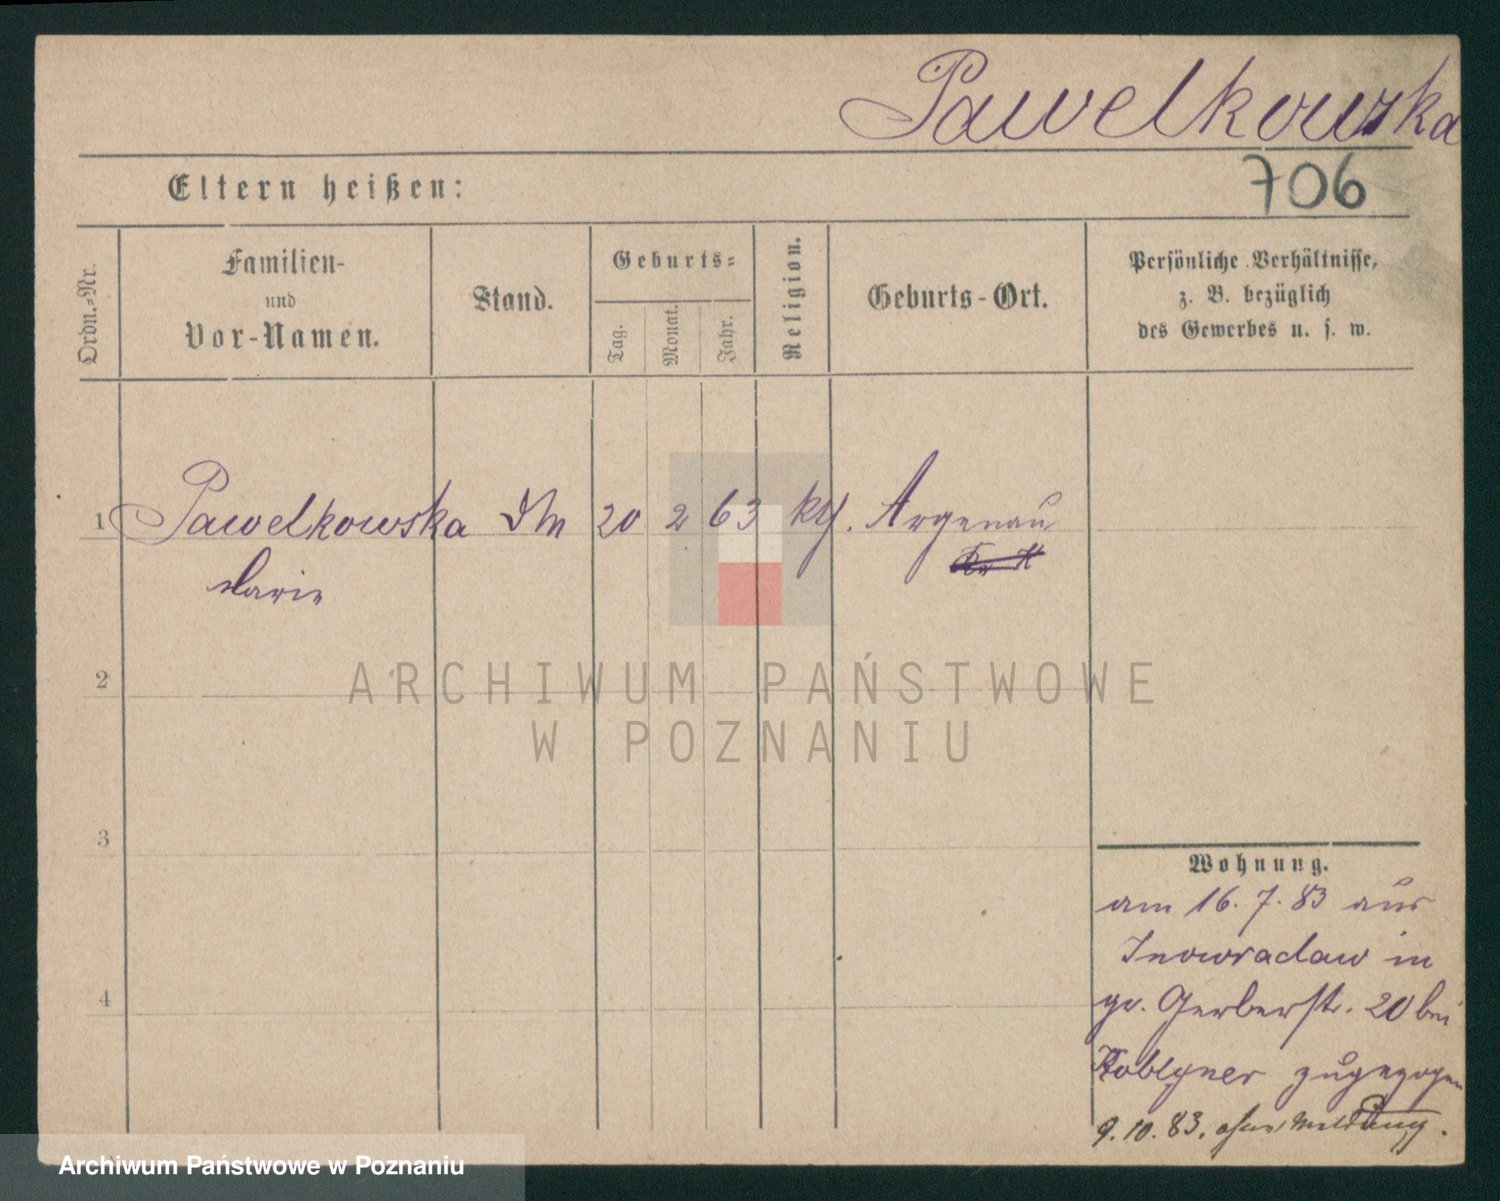 Pawelkowska
706
Eltern heißen:
Ordn.-Nr.
Familien-
und
Vor-Namen.
Stand.
Geburts-
Tag.
Monat.
Jahr.
Religion.
Geburts-Ort.
Persönliche Verhältnisse,
z. B. bezüglich
des Gewerbes u. s. w.
1 Pawelkowska 20 2 63 Argenau
Marie
2
ARCHIWUM PAŃSTWOWE
W POZNANIU
3
Wohnung.
am 16. 7. 83 aus
Inowraclaw in
4
gr. Gerberstr. 20 bei
zugezogen
9. 10. 83. ohne Meldung.
Archiwum Państwowe w Poznaniu